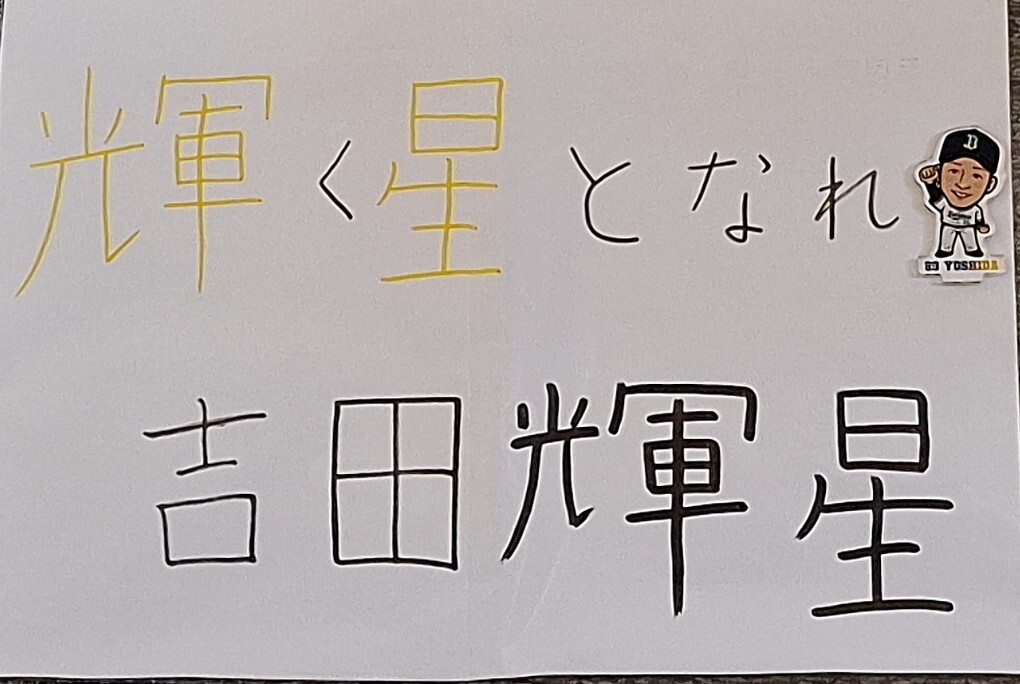 輝く星となれ
B
YOSHIDA
吉田輝星